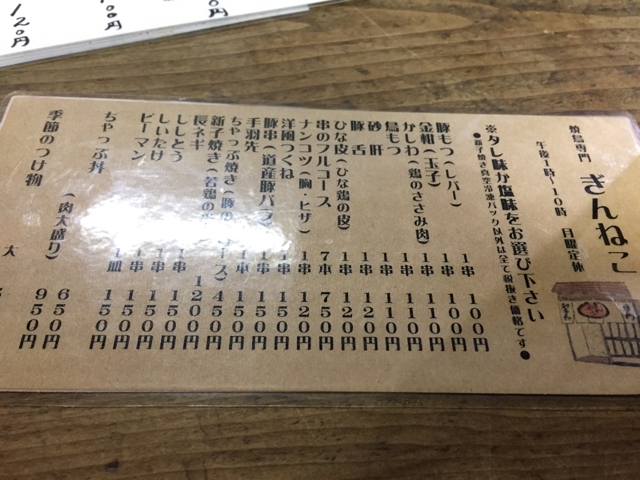 焼鳥専門 ぎんねこ
午後1時〜10時 月曜定休
※タレ味か塩味をお選び下さい
●新子焼き真空冷凍パック以外は全て税抜き価格です●
豚もつ(レバー) 1串 100円
金柑(玉子) 1串 100円
かしわ(鶏のささみ肉) 1串 110円
鳥もつ 1串 110円
砂肝 1串 110円
豚舌 1串 120円
ひな皮(ひな鶏の皮) 1串 120円
串のフルコース 7本 750円
ナンコツ(胸・ヒザ) 1串 120円
洋風つくね 1串 150円
豚串(道産豚バラ) 1串 150円
手羽先 1本 150円
ちゃっぷ焼き(豚の 450円
新子焼き(若鶏の 1200円
長ネギ 1串 150円
ししとう 1串 150円
しいたけ 1串 150円
ピーマン 1皿 150円
ちゃっぷ丼 650円
(肉大盛り) 950円
季節のつけ物
大
120円
00円
円